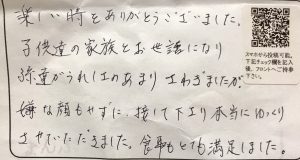 楽しい時をありがとうございました。
子供達の家族とお世話になり
孫達がうれしさのあまりさわぎましたが、
嫌な顔もせずに、接して下さり本当にゆっくり
させていただきました。食事もとても満足しました。
スマホから投稿可能。
下記チェック欄を記入
後、フロントへご持参
下さい。